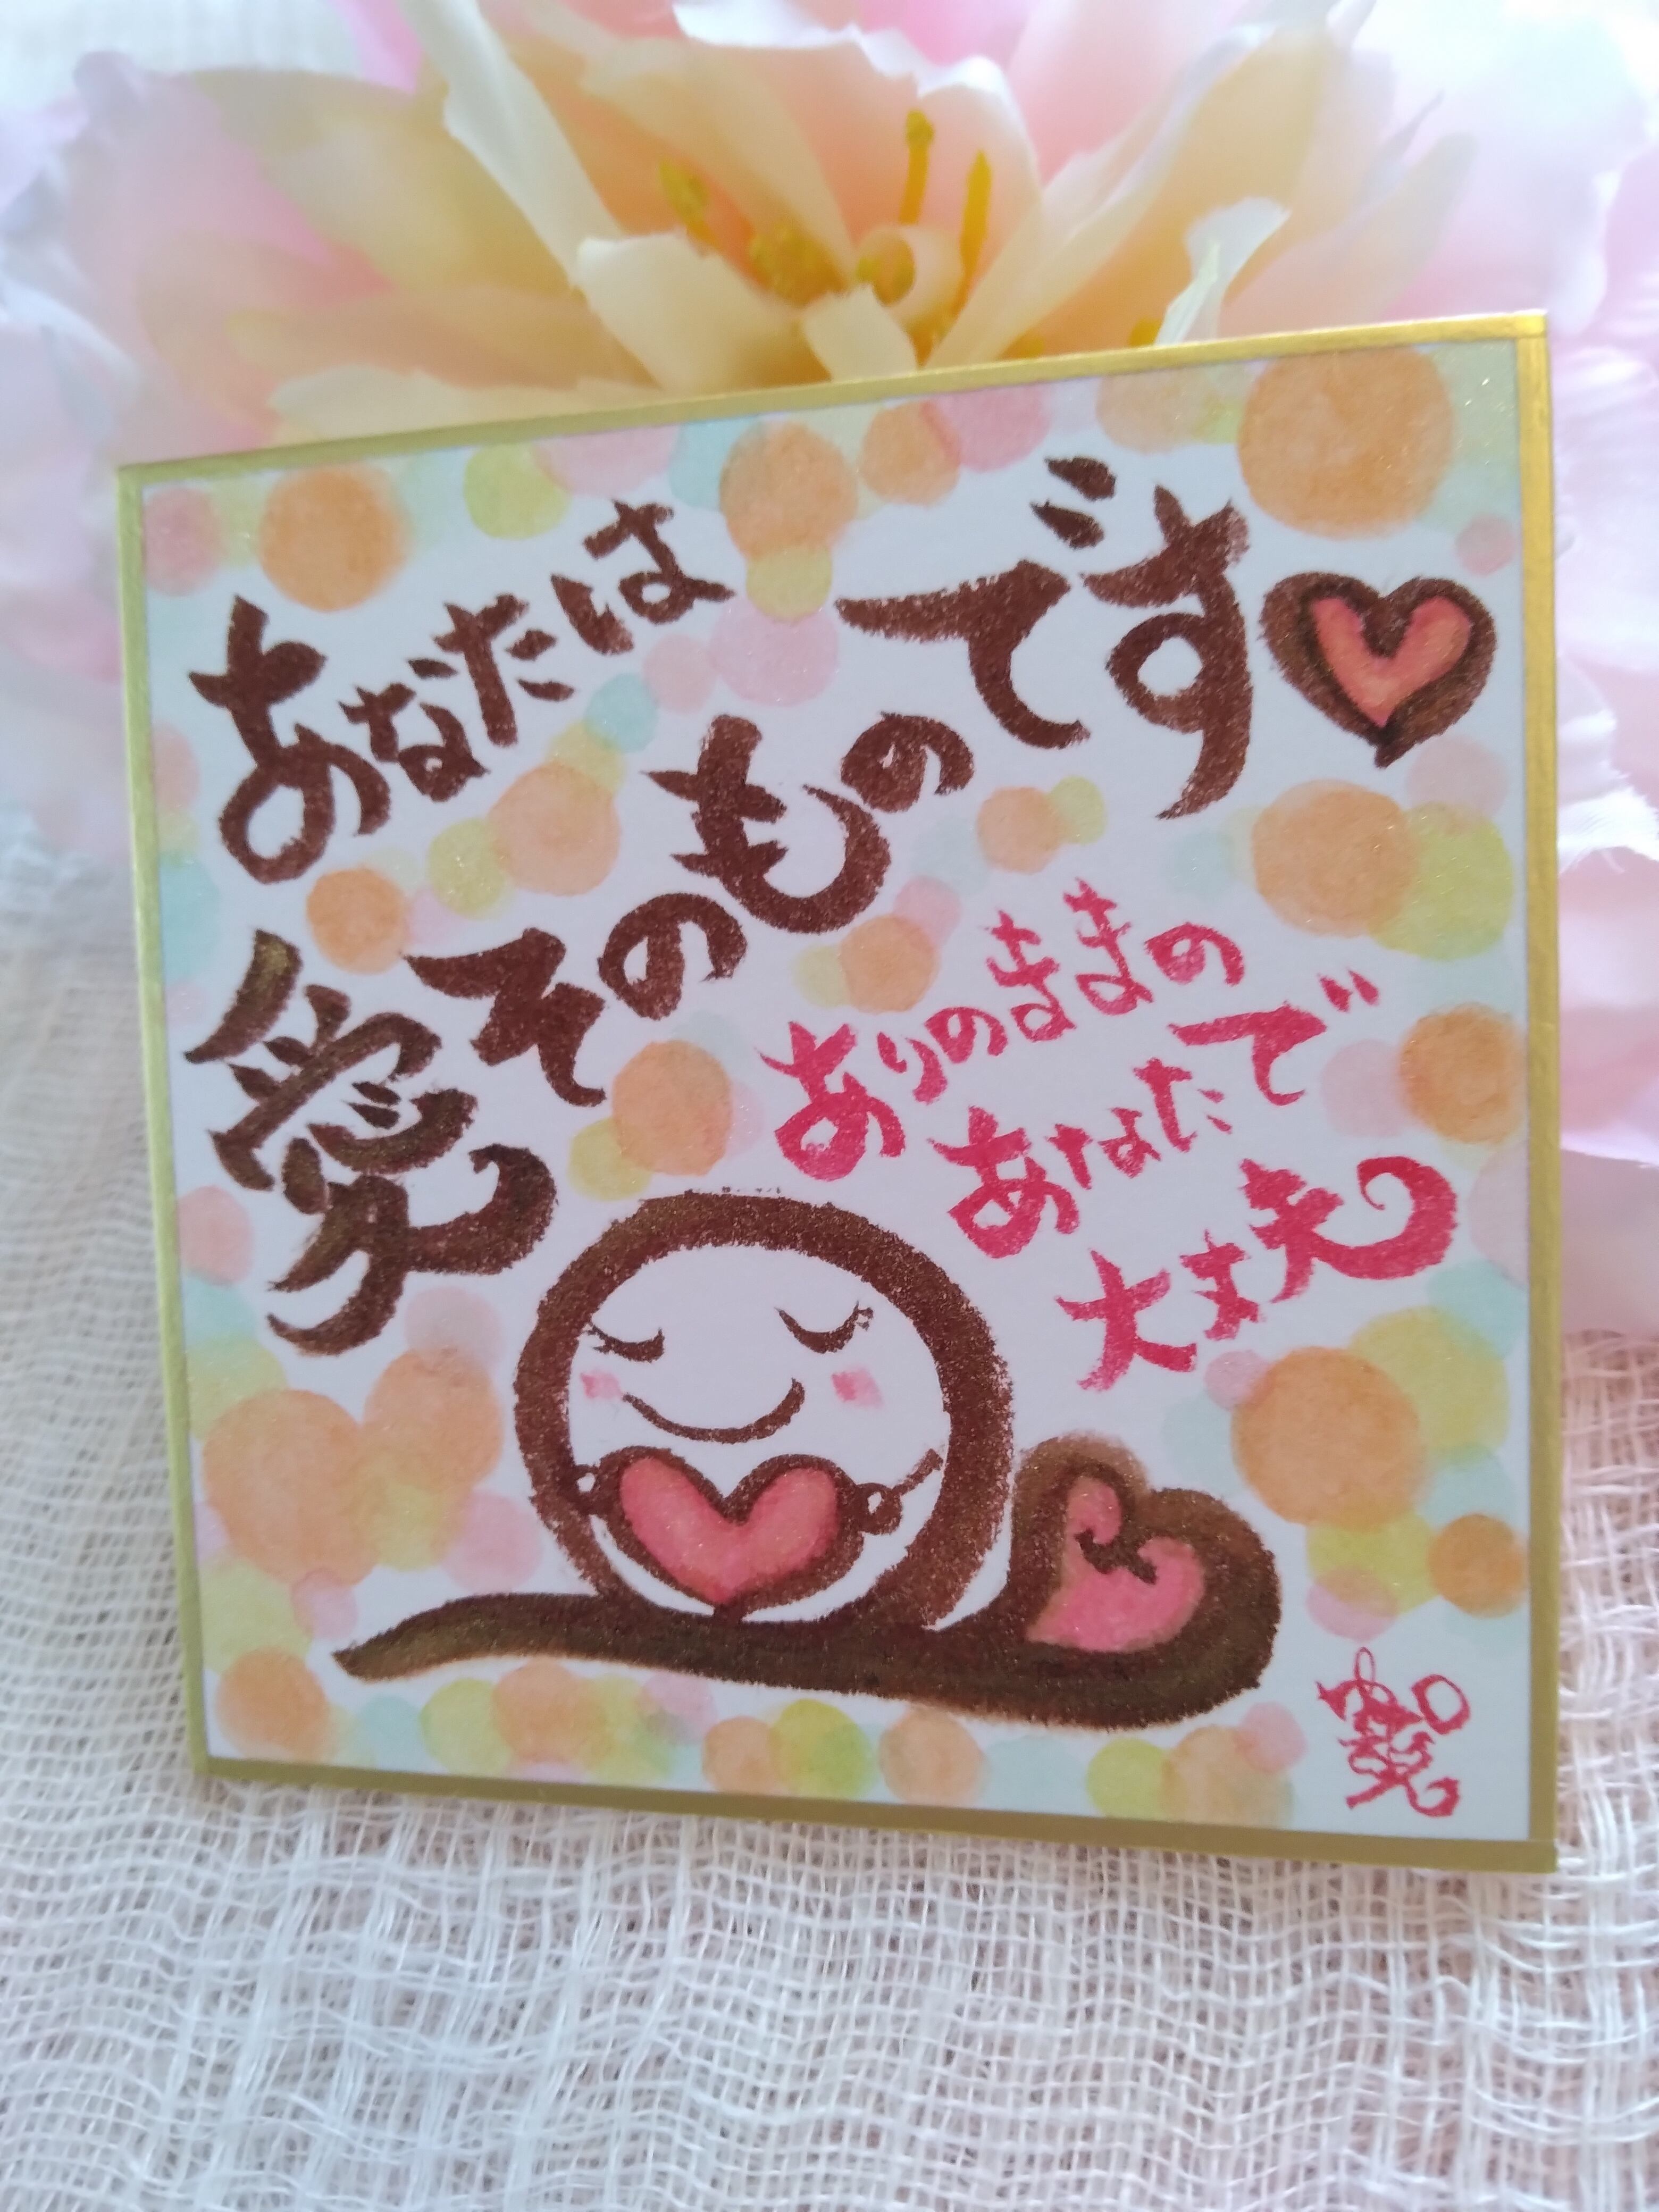 あなたは
愛そのものです♥
ありのままの
あなたで
大丈夫